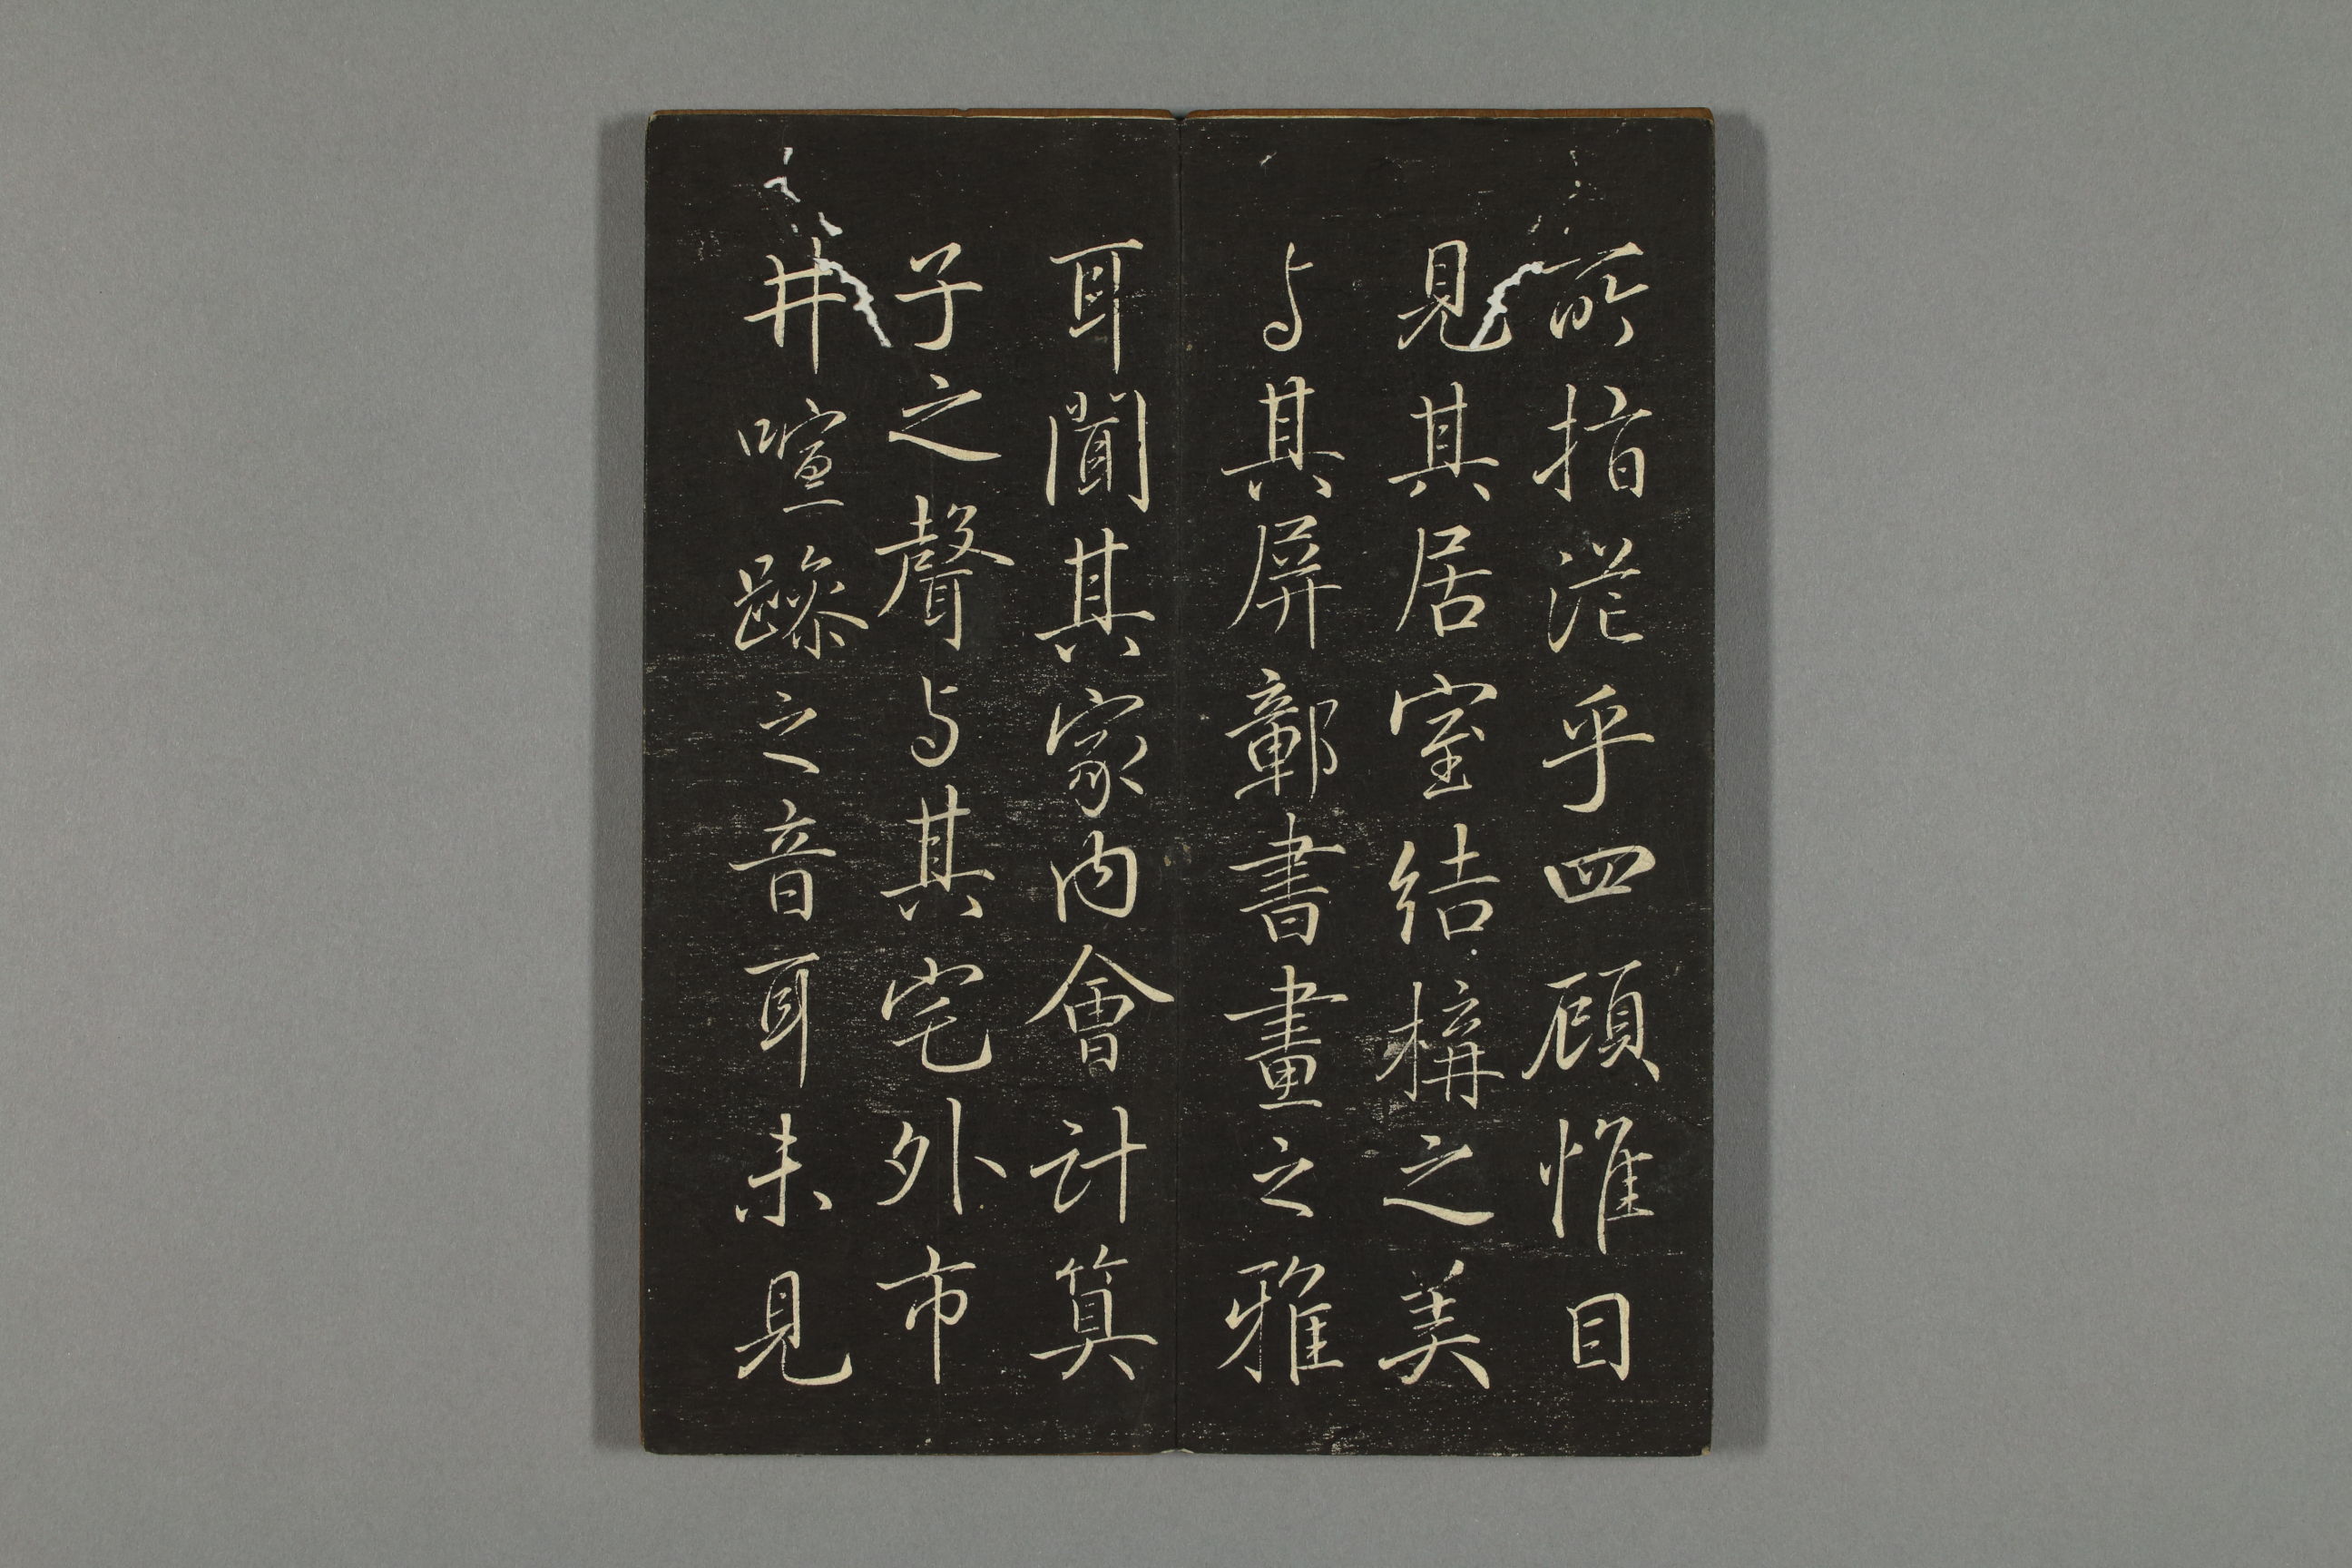 所指茫乎四顧惟目
見其居室結構之美
与其屏鄣書畫之雅
耳聞其家内會計算
子之聲与其宅外市
井喧躁之音耳未見